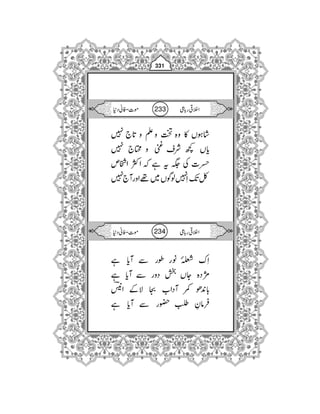 331
اخلاقی رباعی 233 موت-فانی دنیا
شاہوں کا وہ تخت و علم و تاج نہیں
یاں کچھ شرفِ غنی و محتاج نہیں
حسرت کی جگہ ہے یہ کہ اکثر اشخاص
کل تک اِنہیں لوگوں میں تھے اور آج نہیں
اخلاقی رباعی 234 موت-فانی دنیا
اِک شعلۂ نور طور سے آیا ہے
مژدہ جاں بخش دور سے آیا ہے
باندھو کمر آداب بجا لا کے انیسؔ
فرمانِ طلب حضور سے آیا ہے